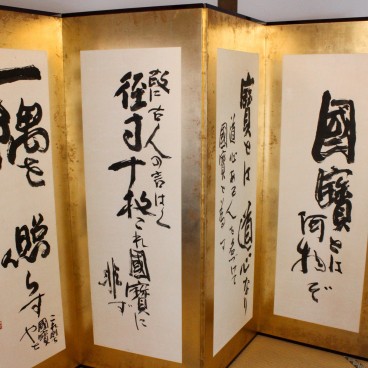 國寶とは
何物ぞ
寶とは道心なり
道心ある人を名づけて
國寶と
故に古人の言はく
径寸十枚これ國寶に
非ず
一隅を
照らす
これ則
國寶や